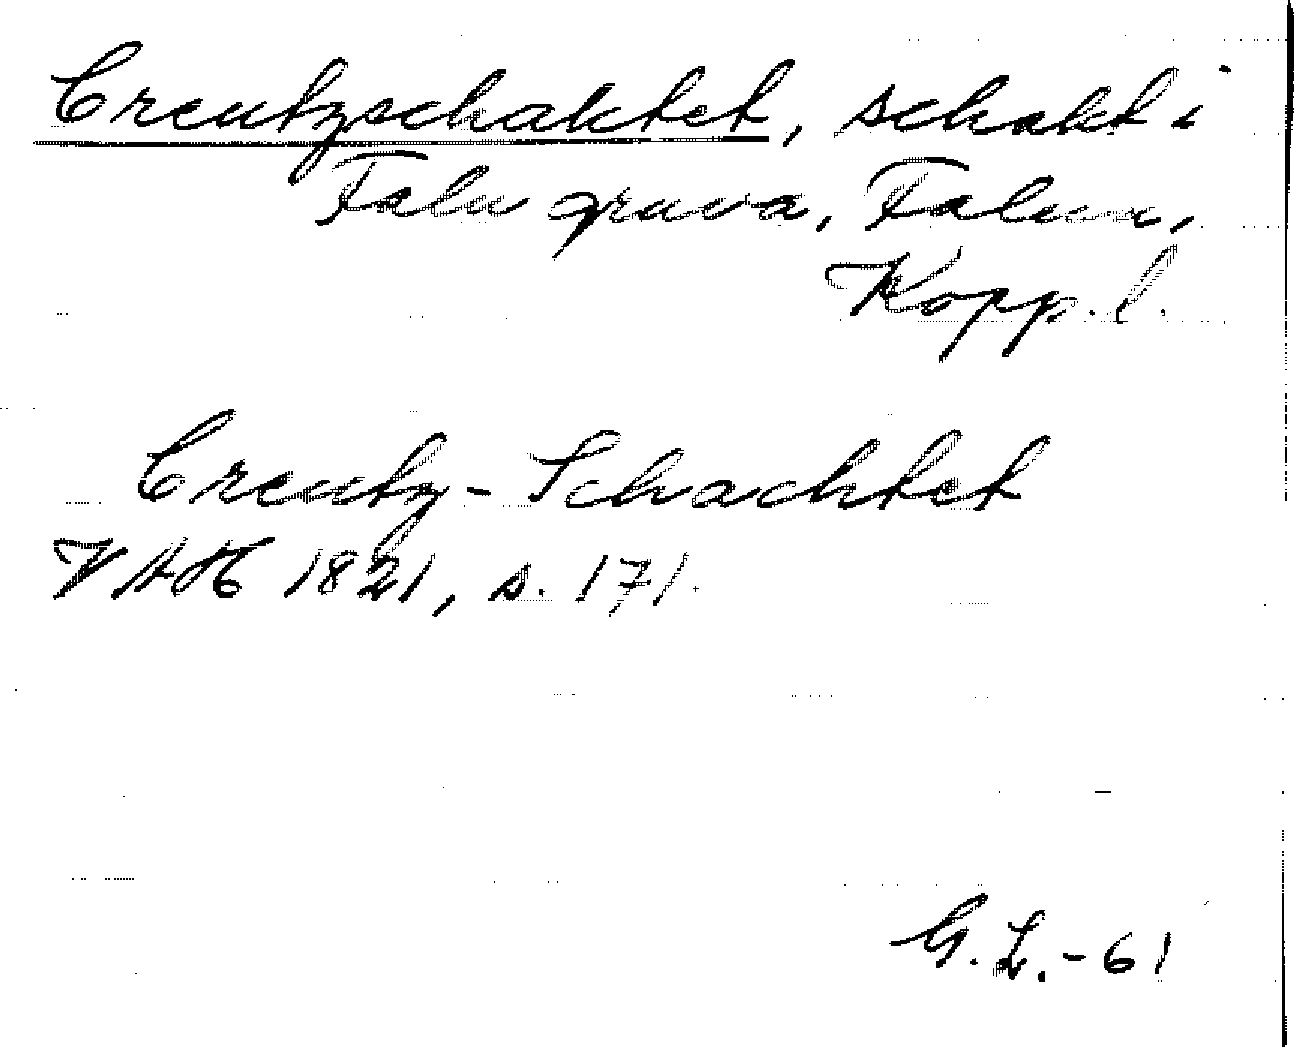 Creutzschaktet, schakt i
Falu gruva, Falun,
Kopp. l.
Creutz-Schachtet
VAH 1821, s. 171.
G. L. -61